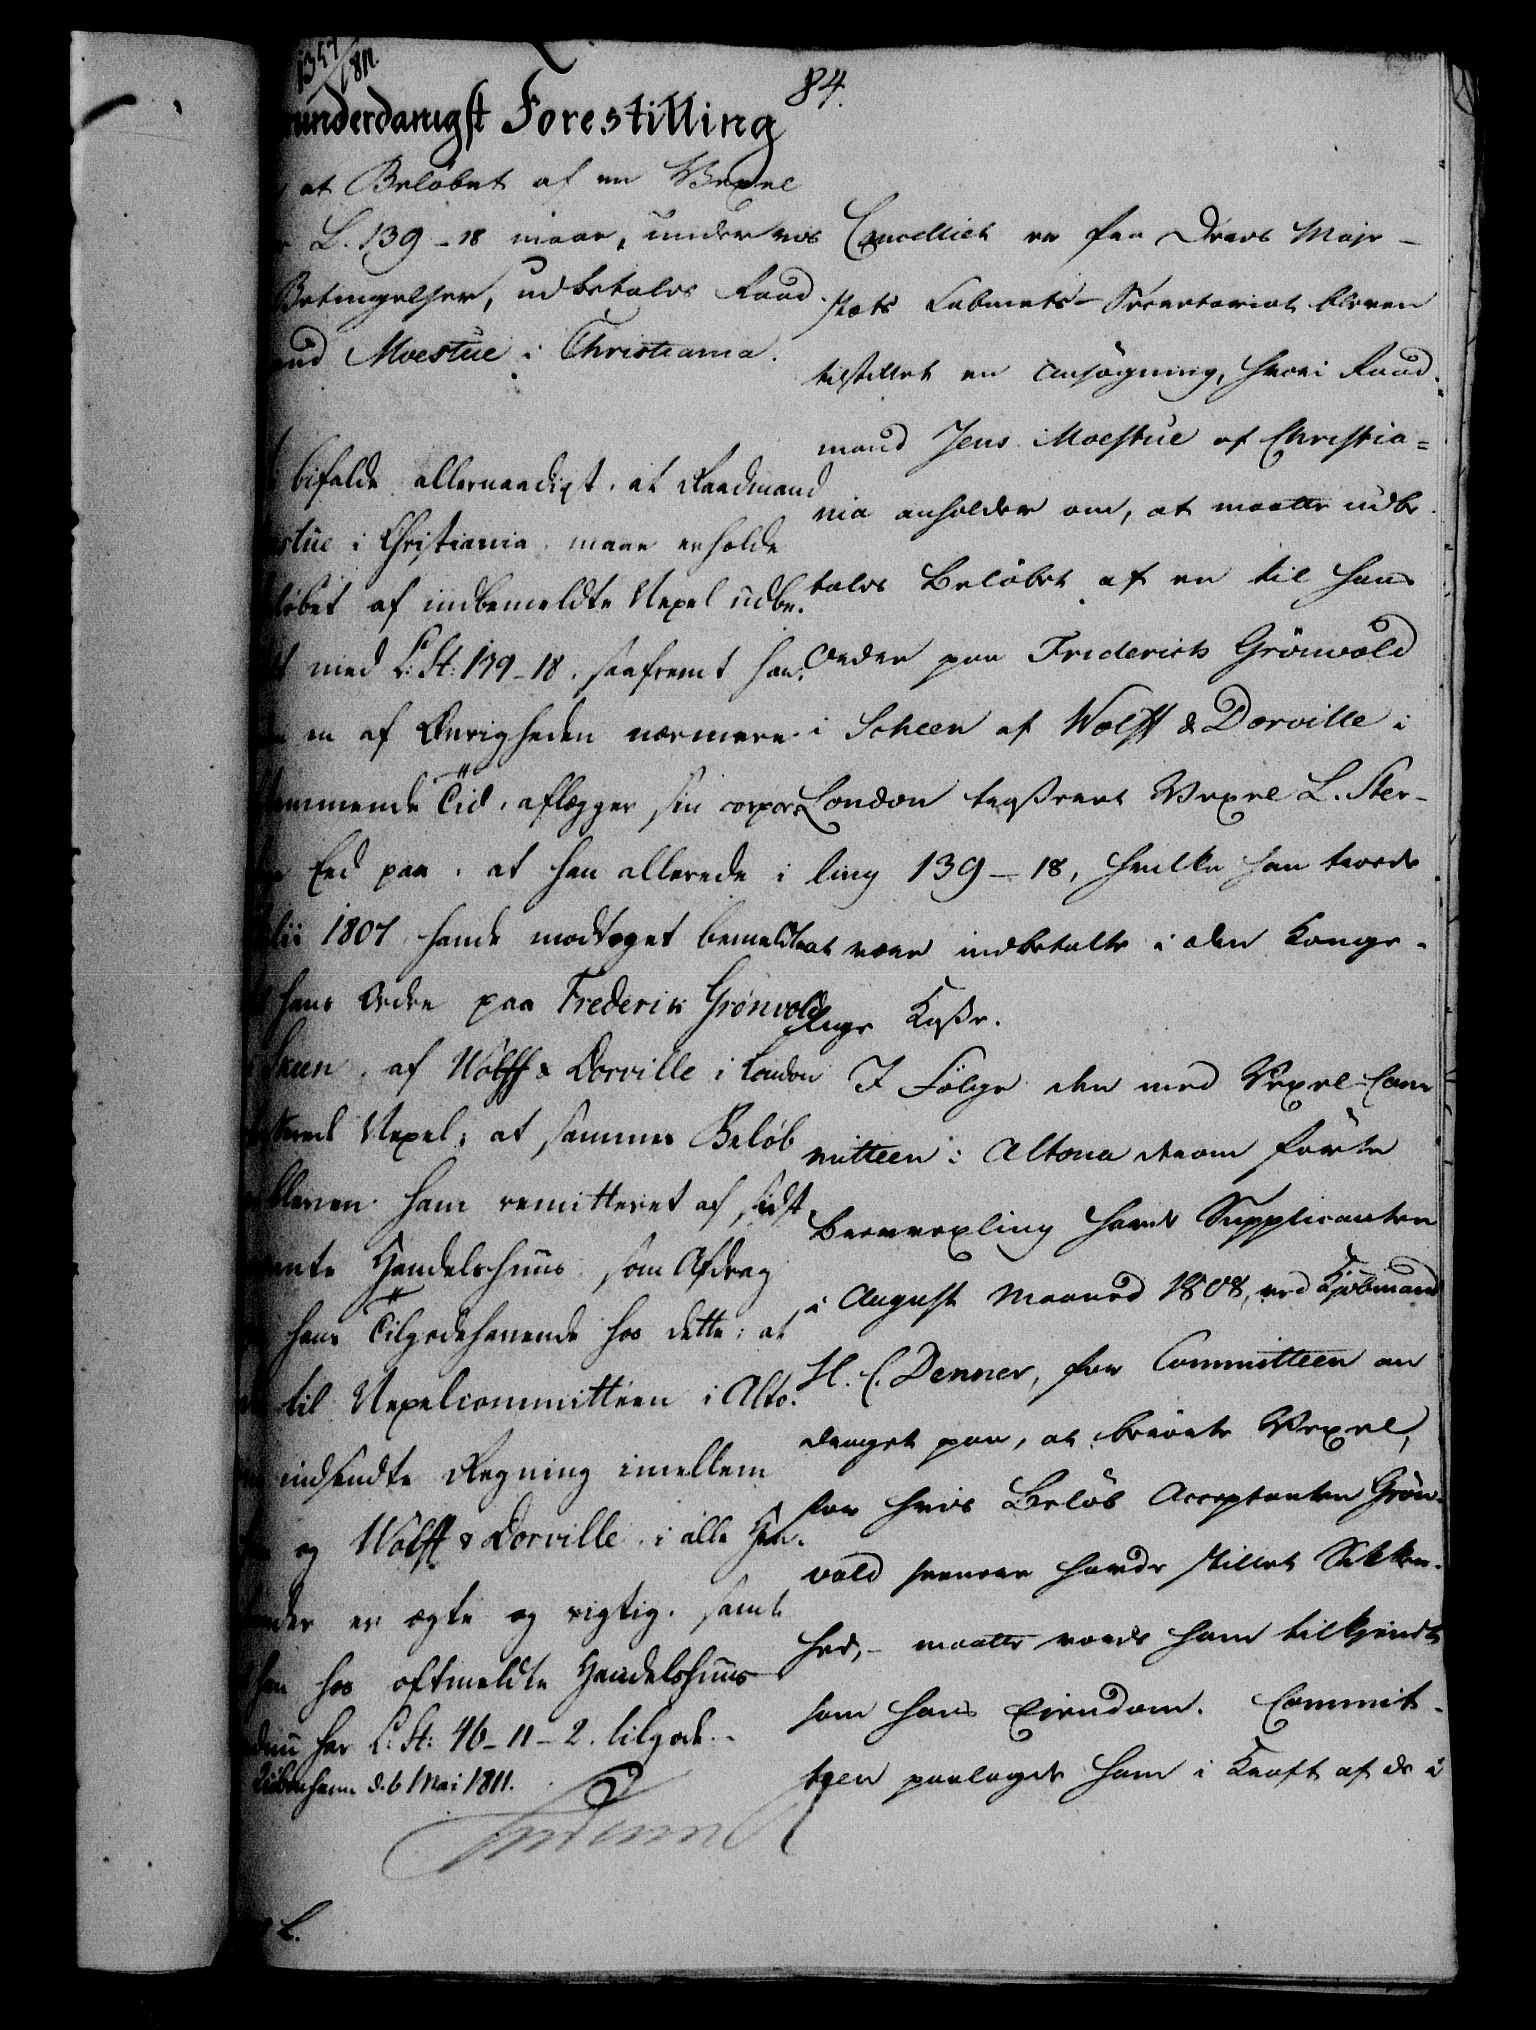 1357/1811.
84.
underdanigst Forestilling
at Beløbet af en Vexel
L. 139-18 maae, under nos
Betingelser, udbetales Raad-
Moestue i Christiania.
bifalde allernaadigst, at Raadmand
stue i Christiania, maae erholde
løbet af indbemeldte Vexel udbe-
med L: St: 139-18, saafremt han
en af Øvrigheden nærmere
stemmende Tid, aflægger sin corpor
Eed paa, at han allerede i
Julii 1807 havde modtaget bemeldte
hans Ordre paa Frederik Grönvold
Skeen, af Wolff & Dorville i London
Vexel; at sammes Beløb
bleven ham remitteret af sidst
Handelshuus som Afdrag
hans Tilgodehavende hos dette; at
til Vexelcommitteen i Alto-
indsendte Regning imellem
og Wolff & Dorville, i alle Hen-
seender er ægte og rigtig, samt
han hos oftmeldte Handelshuus
endnu har L: St: 46-11-2. tilgode.-
Kiøbenhavn d. 6 Mai 1811.
L.
Cancelliet er fra Deres Maje-
stæts Cabinets-Secretariat bleven
tilstillet en Ansøgning, hvori Raad-
mand Jens Moestue af Christia=
nia anholder om, at maatte udbe-
tales Beløbet af en til hans
Ordre paa Friderich Grönvold
i Scheen af Wolff & Dorville i
London trasseret Vexel L. Ster-
ling 139-18, hvilke han troede
at være indbetalte i den Konge-
lige Kasse.
I Følge den med Vexel-Com
mitteen i Altona derom førte
Brevvexling havde Supplicanten
i August Maaned 1808, ved Kjøbmand
H. C. Denner, for Committeen an
draget paa, at benævnte Vexel,
for hvis Beløb Acceptanten Grön-
vold havde stillet Sikker-
hed,- maatte vorde ham tilkjendt
som hans Eiendom. Commit-
teen paalagde ham i Kraft af de i